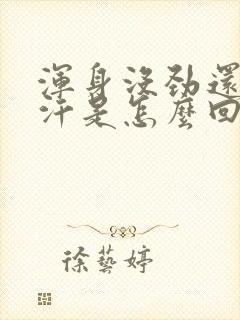 渾身沒勁還
汗是怎麼回
徐藝婷